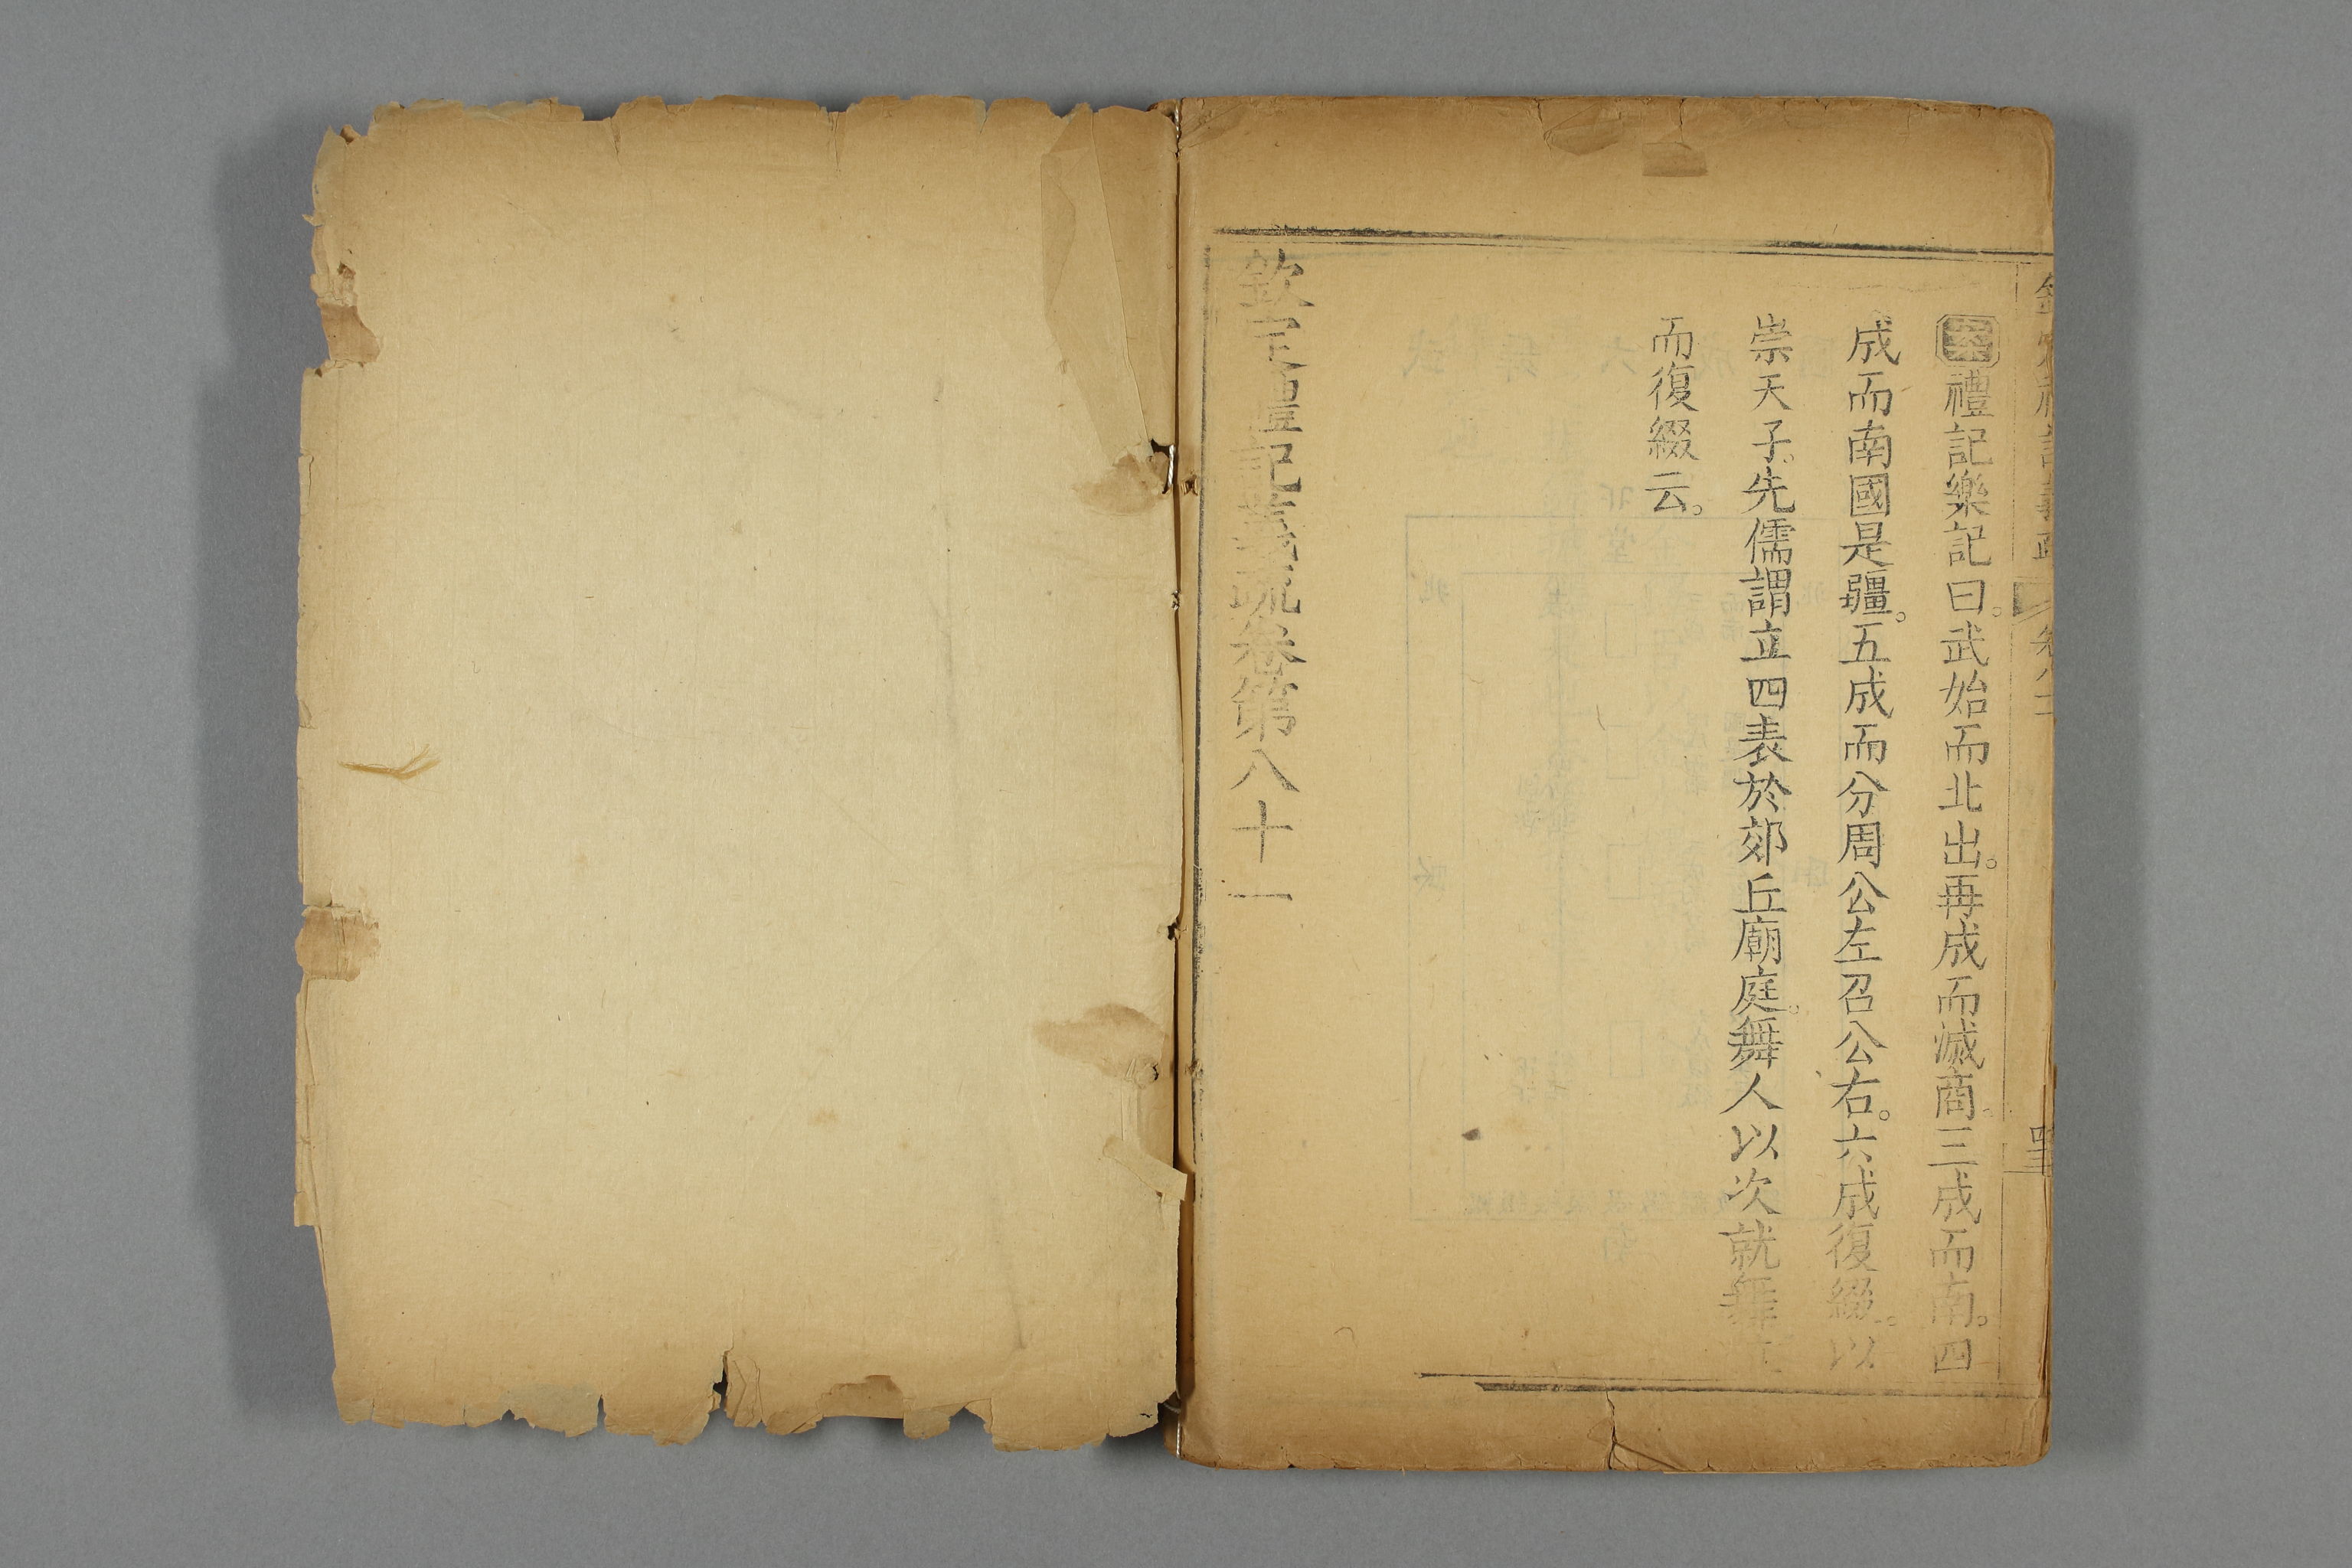 欽定禮記義疏 卷八十一
案禮記樂記曰。武始而北出。再成而滅商。三成而南。四
成而南國是疆。五成而分周公左召公右。六成復綴。以
崇天子。先儒謂立四表於郊丘廟庭。舞人以次就舞
而復綴云。
欽定禮記義疏卷第八十一